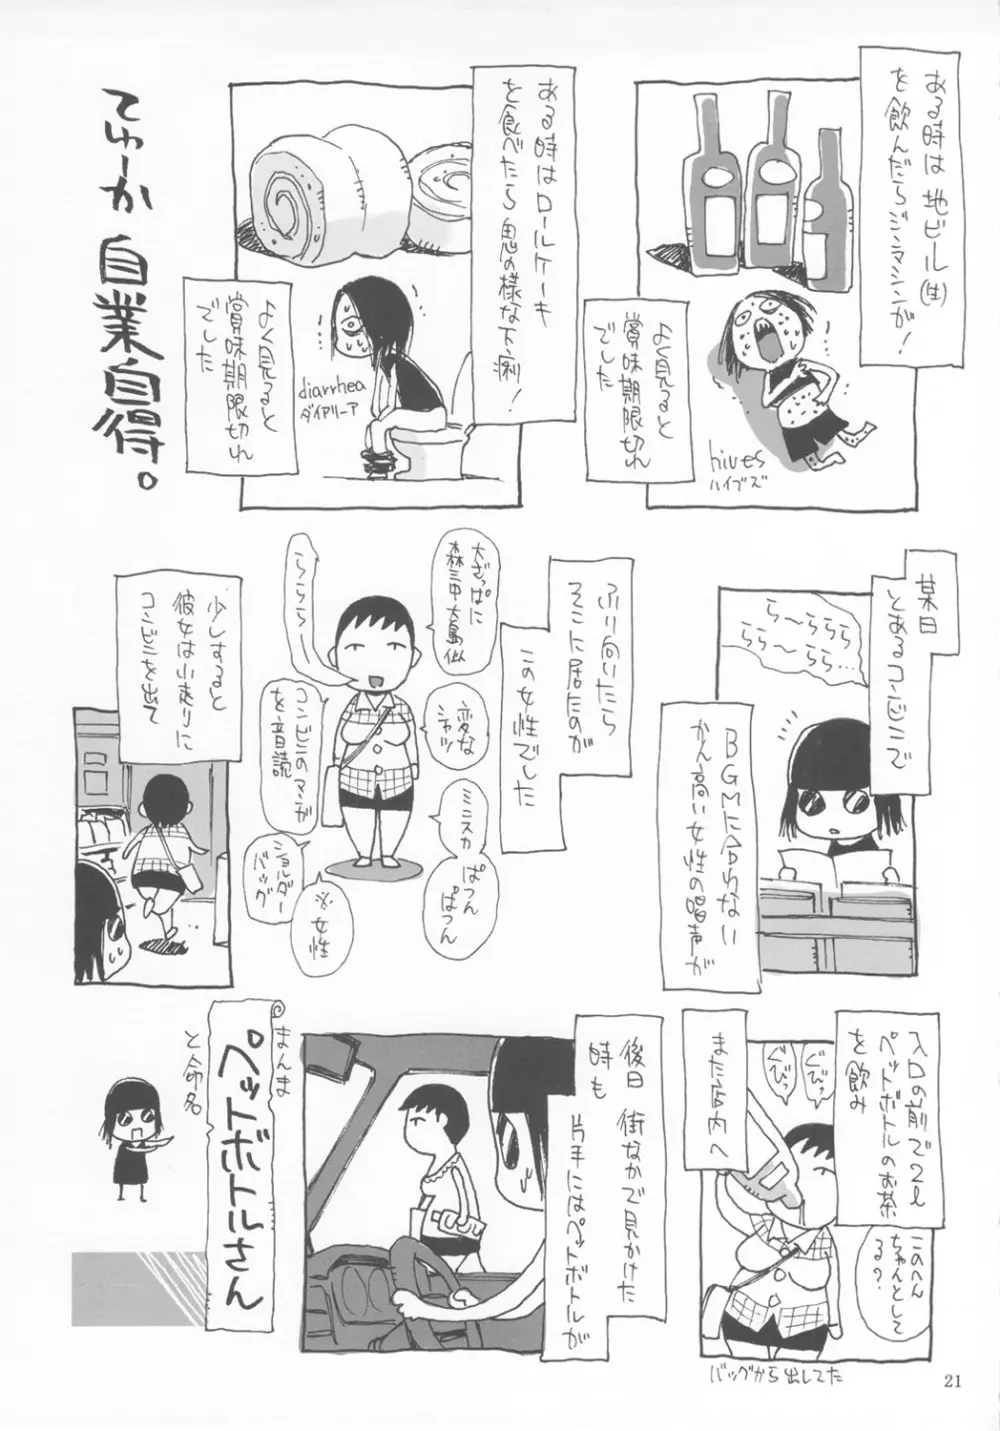 ある時は 地ビール(生)
を飲んだらジンマシンが!
よく見ると
賞味期限切れ
でした
hives
ハイブズ
ある時はロールケーキ
を食べたら鬼の様な下痢!
diarrhea
ダイアリーア
よく見ると
賞味期限切れ
でした
てゅーか 自業自得。
某日
とあるコンビニで
ら〜ららら
らら〜らら…
BGMに合わない
かん高い女性の唱声が
ふり向いたら
そこに居たのが
この女性でした
大ざっぱに
森三中大島似
ららら
変な
シャツ
コンビニのマンガ
を音読
ミニスカ
ぱっつん
ぱっつん
ショルダー
バッグ
※女性
少しすると
彼女は小走りに
コンビニを出て
入口の前で2ℓ
ペットボトルのお茶
を飲み
ぐびっ
ぐびっ
このへん
ちゃんとして
る?
バッグから出してた
また店内へ
後日 街なかで見かけた
時も 片手にはペットボトルが
まんま
ペットボトルさん
と命名
21